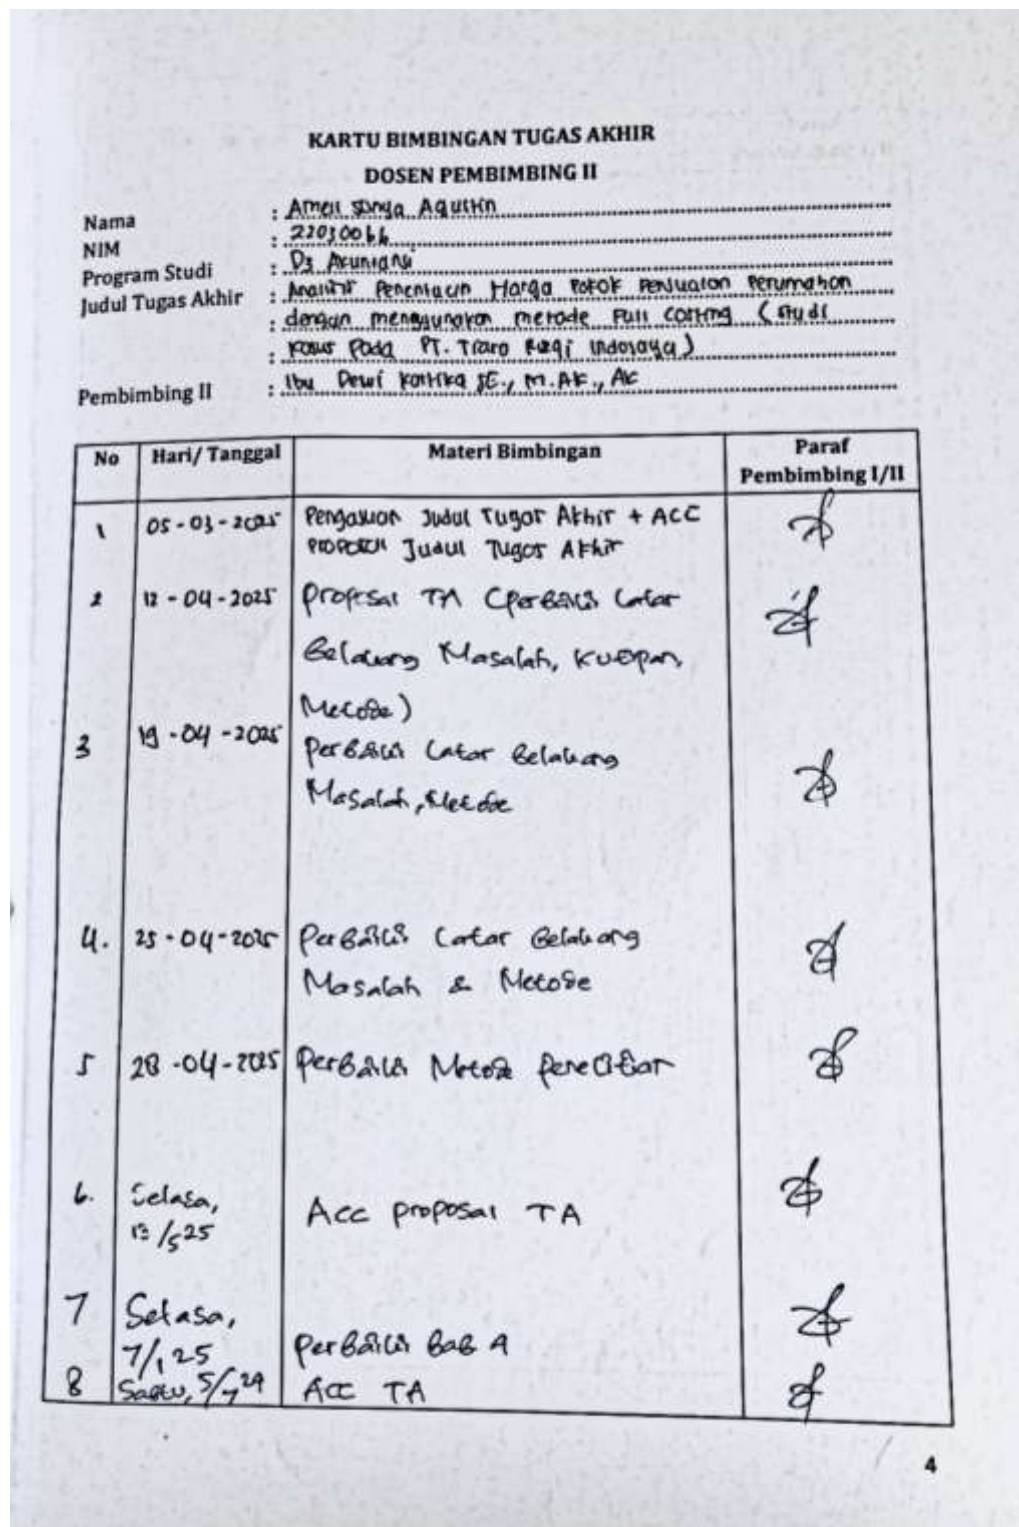 KARTU BIMBINGAN TUGAS AKHIR
DOSEN PEMBIMBING II
Nama : Ameli Sonya Agustin
NIM : 22030066
Program Studi : D3 Akuntansi
Judul Tugas Akhir : Analisis Penentuan Harga Pokok Penjualan Perumahan
: dengan menggunakan metode Full costing (Studi
: Kasus Pada PT. Rizqi Indojaya)
Pembimbing II : Ibu Dewi Kartika SE., M.AK., AK
No Hari/ Tanggal Materi Bimbingan Paraf
Pembimbing I/II
1 05-03-2025 Pengajuan Judul Tugas Akhir + ACC
Judul Tugas Akhir
2 12-04-2025 proposal TA (perbaiki Latar
Belakang Masalah, Kutipan,
Metode)
3 19-04-2025 perbaiki Latar Belakang
Masalah, Metode
4. 25-04-2025 Perbaiki Latar Belakang
Masalah & Metode
5 28-04-2025 perbaiki Metode penelitian
6. Selasa,
13/5 25 Acc proposal TA
7 Selasa,
7/1 25 perbaiki Bab 4
8 Sabtu, 5/7 Acc TA
4